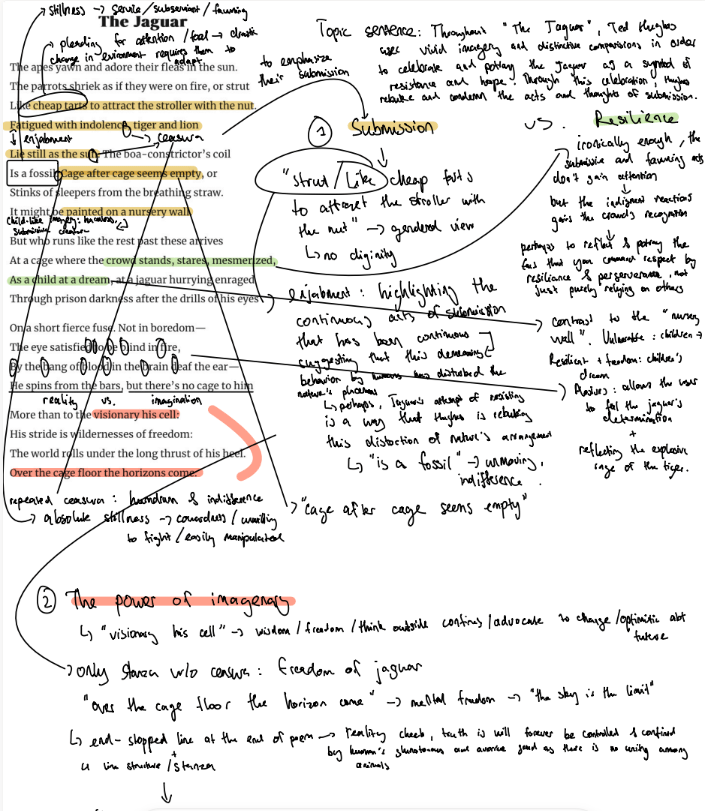 → stillness → servile / subservient / fawning
The Jaguar
→ pleading for attention / food → drastic
change in environment requires them to
adapt
The apes yawn and adore their fleas in the sun.
The parrots shriek as if they were on fire, or strut
Like cheap tarts to attract the stroller with the nut.
Fatigued with indolence, tiger and lion
↓ enjabment
→ ceasura
Lie still as the sun. The boa-constrictor's coil
Is a fossil. Cage after cage seems empty, or
Stinks of sleepers from the breathing straw.
It might be painted on a nursery wall.
Child-like imagery: harmless,
submissive creature
But who runs like the rest past these arrives
At a cage where the crowd stands, stares, mesmerized,
As a child at a dream, at a jaguar hurrying enraged
Through prison darkness after the drills of his eyes
On a short fierce fuse. Not in boredom—
The eye satisfied to be blind in fire,
By the bang of blood in the brain deaf the ear—
He spins from the bars, but there's no cage to him
reality vs. imagination
More than to the visionary his cell:
His stride is wildernesses of freedom:
The world rolls under the long thrust of his heel.
Over the cage floor the horizons come.
repeated ceasura: humdrum & indifference
→ absolute stillness → cowardness / unwilling
to fight / easily manipulated
Topic sentence: Throughout "The Jaguar", Ted Hughes
uses vivid imagery and distinctive comparisons in order
to celebrate and portray the Jaguar as a symbol of
resistance and hope. Through this celebration, Hughes
rebuke and condemn the acts and thoughts of submission.
to emphasize
their submission
① Submission
vs. Resilience
"strut / Like cheap tarts
to attract the stroller with
the nut" → gendered view
↳ no diginity
→ enjabment: highlighting the
continuous acts of submission
that has been continuous
suggesting that this demeaning
behavior by humans has disturbed the
nature's placement
↳ perhaps, Jaguar's attempt of resisting
is a way that Hughes is rebuking
this distoction of nature's arrangement
↳ "is a fossil" → unmoving,
indifference.
→ "cage after cage seems empty"
ironically enough, the
submissive and fawning acts
don't gain attention
↓
but the indignant reactions
gains the crowds recognition
↓
perhaps to reflect & portray the
fact that you command respect by
resiliance & perserverance, not
just purely relying on others
→ contrast to the "nursery
wall". Vulnerable: children →
Resilient + freedom: children's
dream
→ Plosives: allows the user
to feel the jaguar's
determination
+
reflecting the explosive
rage of the tiger.
② The power of imagenary
↳ "visionary his cell" → wisdom / freedom / think outside confines / advocate to change / optimistic abt
future
→ only stanza w/o ceasura: freedom of jaguar
"over the cage floor the horizon come" → mental freedom → "the sky is the limit"
↳ end-stopped line at the end of poem → reality check, truth is will forever be controlled & confined
by human's and avarice as there is no unity among
animals
4 line structure / stanza
↓